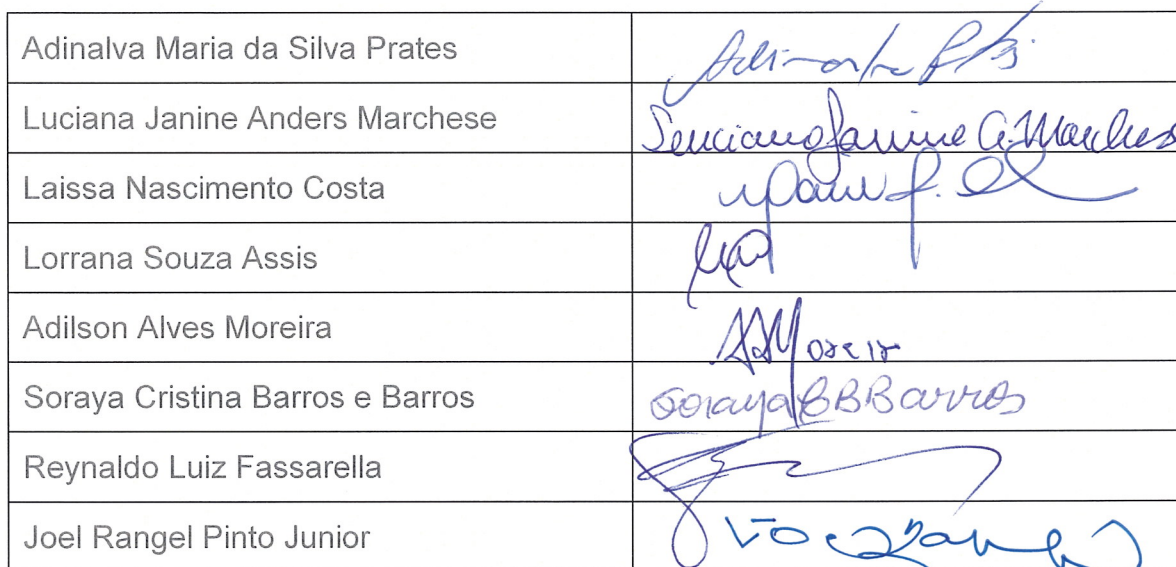 Adinalva Maria da Silva Prates
Luciana Janine Anders Marchese Luciana Janine A. Marchese
Laissa Nascimento Costa
Lorrana Souza Assis
Adilson Alves Moreira AAMoreir
Soraya Cristina Barros e Barros Soraya CBBarros
Reynaldo Luiz Fassarella
Joel Rangel Pinto Junior